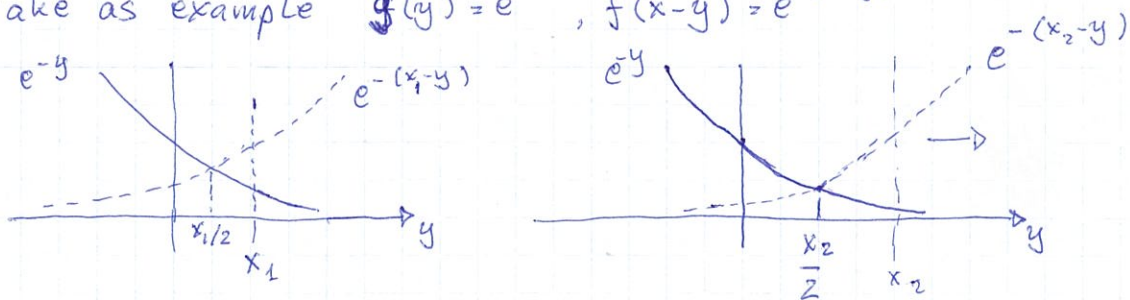 ake as example f(y) = e , f(x-y) = e
e^-y e^-(x₁-y)
x₁/2 x₁ y
e^-y e^-(x₂-y)
x₂/2 x₂ y